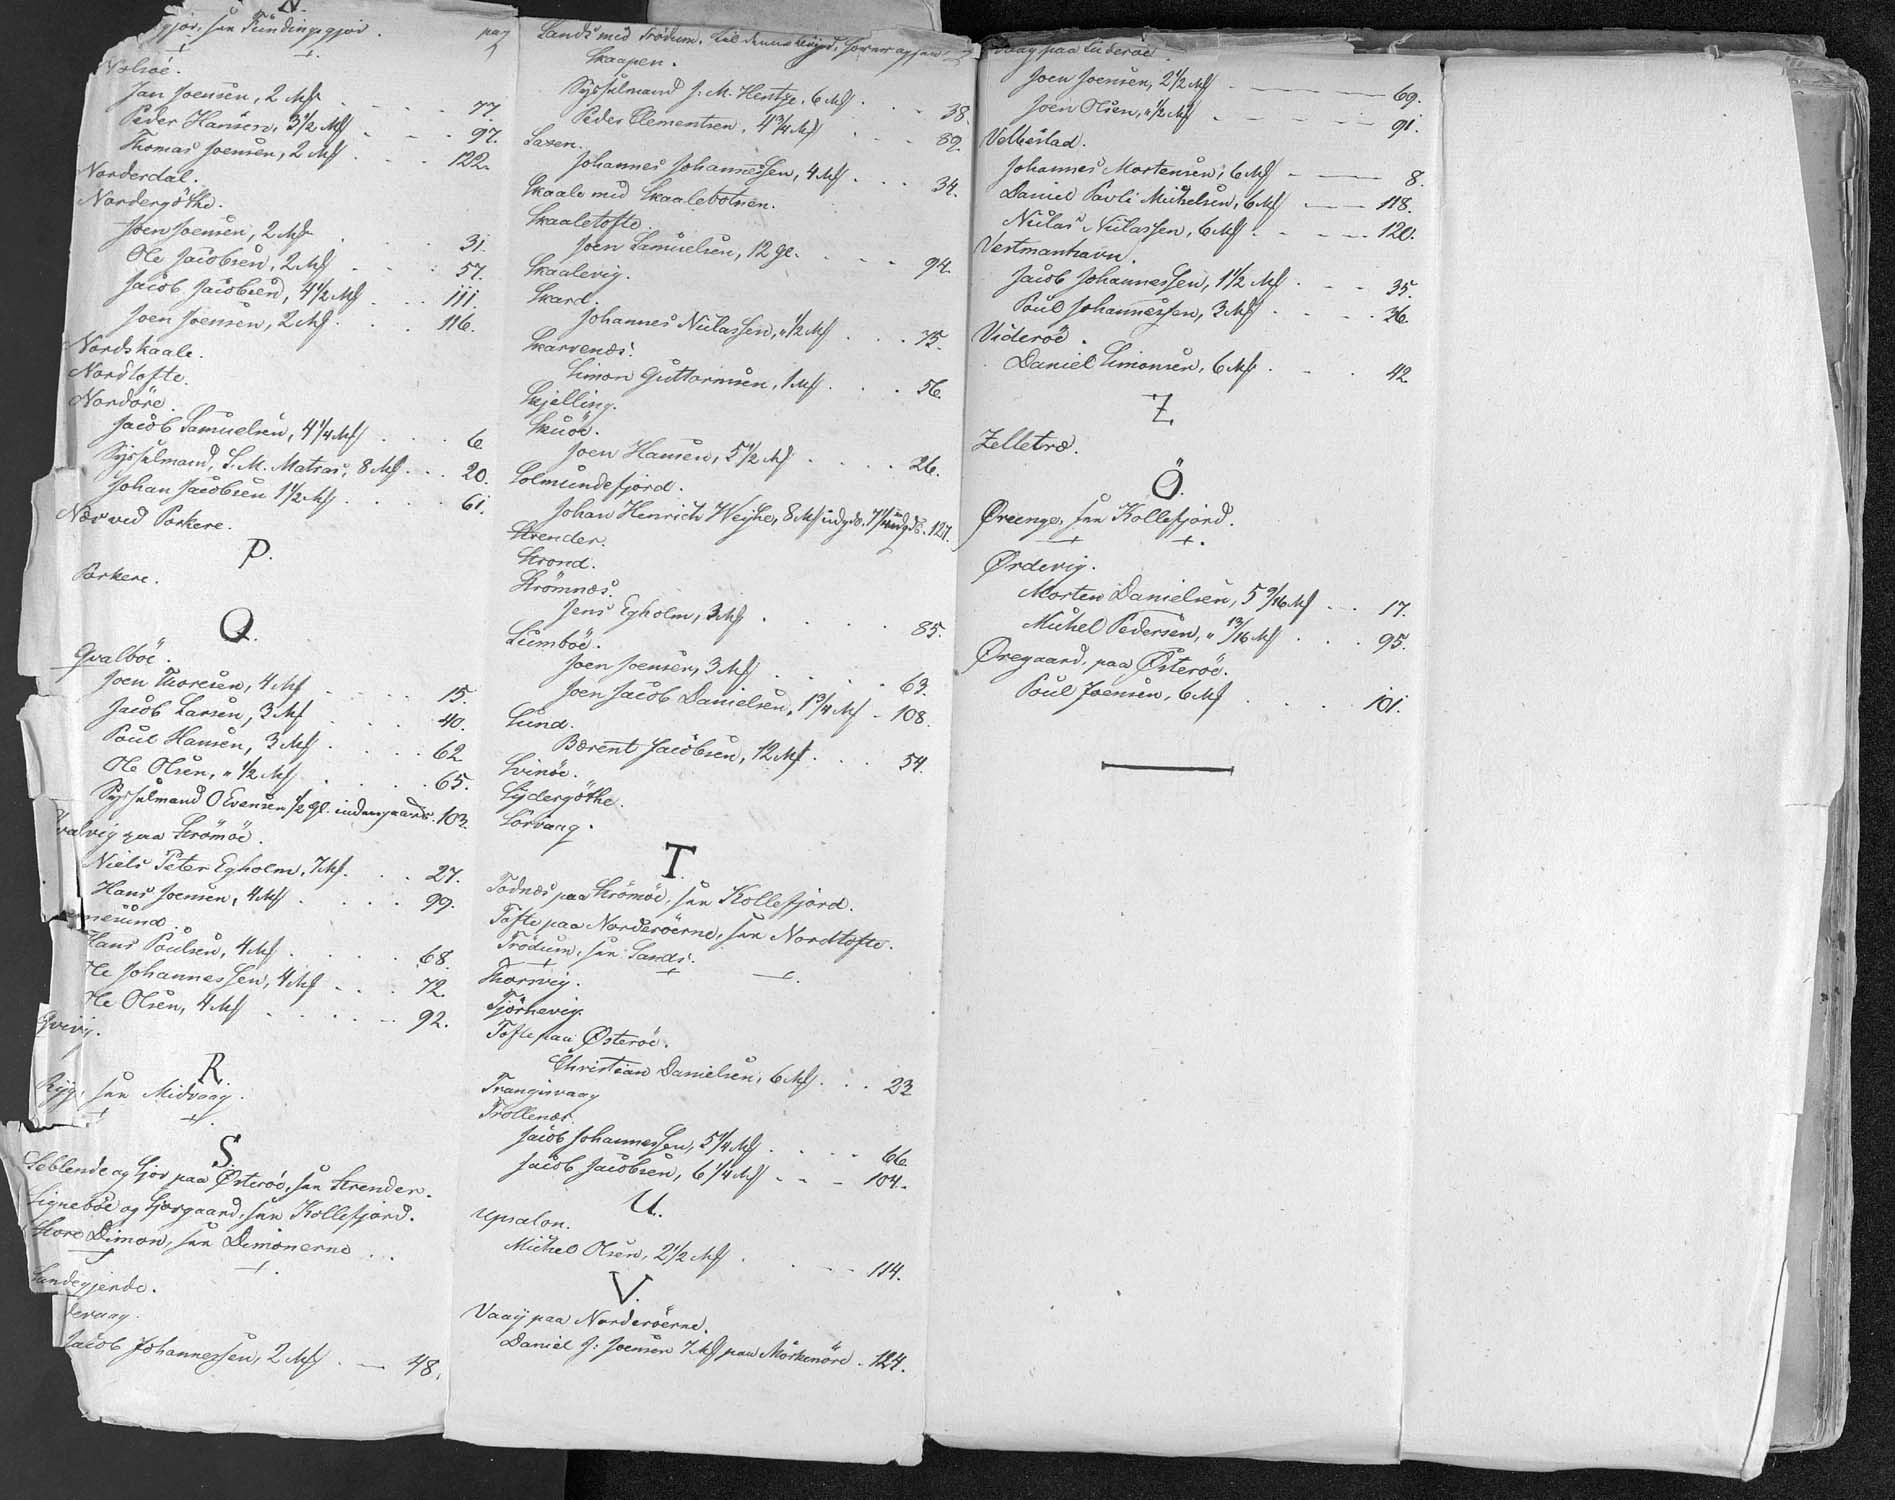 N.
gjov, see Fundingsgjov. pag
Nolsöe.
Jan Joensen, 2 Mk 77.
Peder Hansen, 3 1/2 Mk 97.
Thomas Joensen, 2 Mk 122.
Norderdal.
Nordergöthe.
Joen Joensen, 2 Mk 31.
Ole Jacobsen, 2 Mk 57.
Jacob Jacobsen, 4 1/2 Mk 111.
Joen Joensen, 2 Mk 116.
Nordskaale.
Nordtofte.
Nordöre.
Jacob Samuelsen, 4 1/4 Mk 6
Sysselmand, S. M. Matras, 8 Mk 20.
Johan Jacobsen 1 1/2 Mk 61.
Næs ved Porkere.
P.
Porkere.
Q.
Qvalböe.
Joen Thoresen, 4 Mk 15.
Jacob Larsen, 3 Mk 40.
Poul Hansen, 3 Mk 62
Ole Olsen, " 1/2 Mk 65.
Sysselmand O Evensen 1/2 gl. indengaards 103.
Qvalvig paa Strömöe.
Niels Peter Egholm, 7 Mk 27.
Hans Joensen, 4 Mk 99.
Qvannesund.
Hans Poulsen, 4 Mk 68.
Ole Johannessen, 4 Mk 72.
Ole Olsen, 4 Mk 92.
Qvivig.
R.
Ryg, see Midvaag.
S.
Seblende og Gjov paa Østeröe, see Strender.
Signeböe og Gjorgaard, see Kollefjord.
Store Dimon, see Dimonerne
Sandegjerde.
devaag.
Jacob Johannessen, 2 Mk 48.
Sands med Trödum, til denne Bygd, hører ogsaa
Skaapen.
Sysselmand J. M. Hentze, 6 Mk 38.
Peder Clementsen, 4 3/4 Mk 89.
Saxen.
Johannes Johannessen, 4 Mk 34.
Skaale med Skaalebotnen.
Skaaletofte.
Joen Samuelsen, 12 gl. 94.
Skaalevig.
Skard.
Johannes Niclassen, " 1/2 Mk 75.
Skarvenæs.
Simon Guttormsen, 1 Mk 56.
Skjelling.
Skuöe.
Joen Hansen, 5 1/2 Mk 26.
Solmundefjord.
Johan Henrich Weyhe, 8 Mk indgds. 7/4 udgds. 127.
Strender.
Strond.
Strömnæs.
Jens Egholm, 3 Mk 85.
Sumböe.
Joen Joensen, 3 Mk 63.
Joen Jacob Danielsen, 1 3/4 Mk 108.
Sund.
Bærent Jacobsen, 12 Mk 54.
Svinöe.
Sydergöthe.
Sörvaag.
T.
Todnæs paa Strömöe, see Kollefjord.
Tofte paa Norderöerne, see Nordtofte.
Trödum, see Sands.
Thorsvig.
Tjörnevig.
Tofte paa Østeröe.
Christian Danielsen, 6 Mk 23
Trangisvaag
Trollenæs.
Jacob Johannessen, 5 1/4 Mk 66
Jacob Jacobsen, 6 1/4 Mk 104.
U.
Upsalon.
Michel Olsen, 2 1/2 Mk 114.
V.
Vaag paa Norderöerne.
Daniel J. Joensen 7 Mk paa Mörkenöre 124.
Vaag paa Suderöe
Joen Joensen, 2 1/2 Mk 69.
Joen Olsen, " 1/2 Mk 91.
Velbestad.
Johannes Mortensen, 6 Mk 8.
Daniel Pavli Michelsen, 6 Mk 118.
Niclas Niclassen, 6 Mk 120.
Vestmanhavn.
Jacob Johannessen, 1 1/2 Mk 35.
Poul Johannessen, 3 Mk 36
Videröe.
Daniel Simonsen, 6 Mk 42
Z.
Zelletræ.
Ö.
Øreenge, see Kollefjord.
Ørdevig.
Morten Danielsen, 5 9/16 Mk 17.
Michel Pedersen, " 13/16 Mk 95.
Øregaard, paa Østeröe.
Poul Joensen, 6 Mk 101.